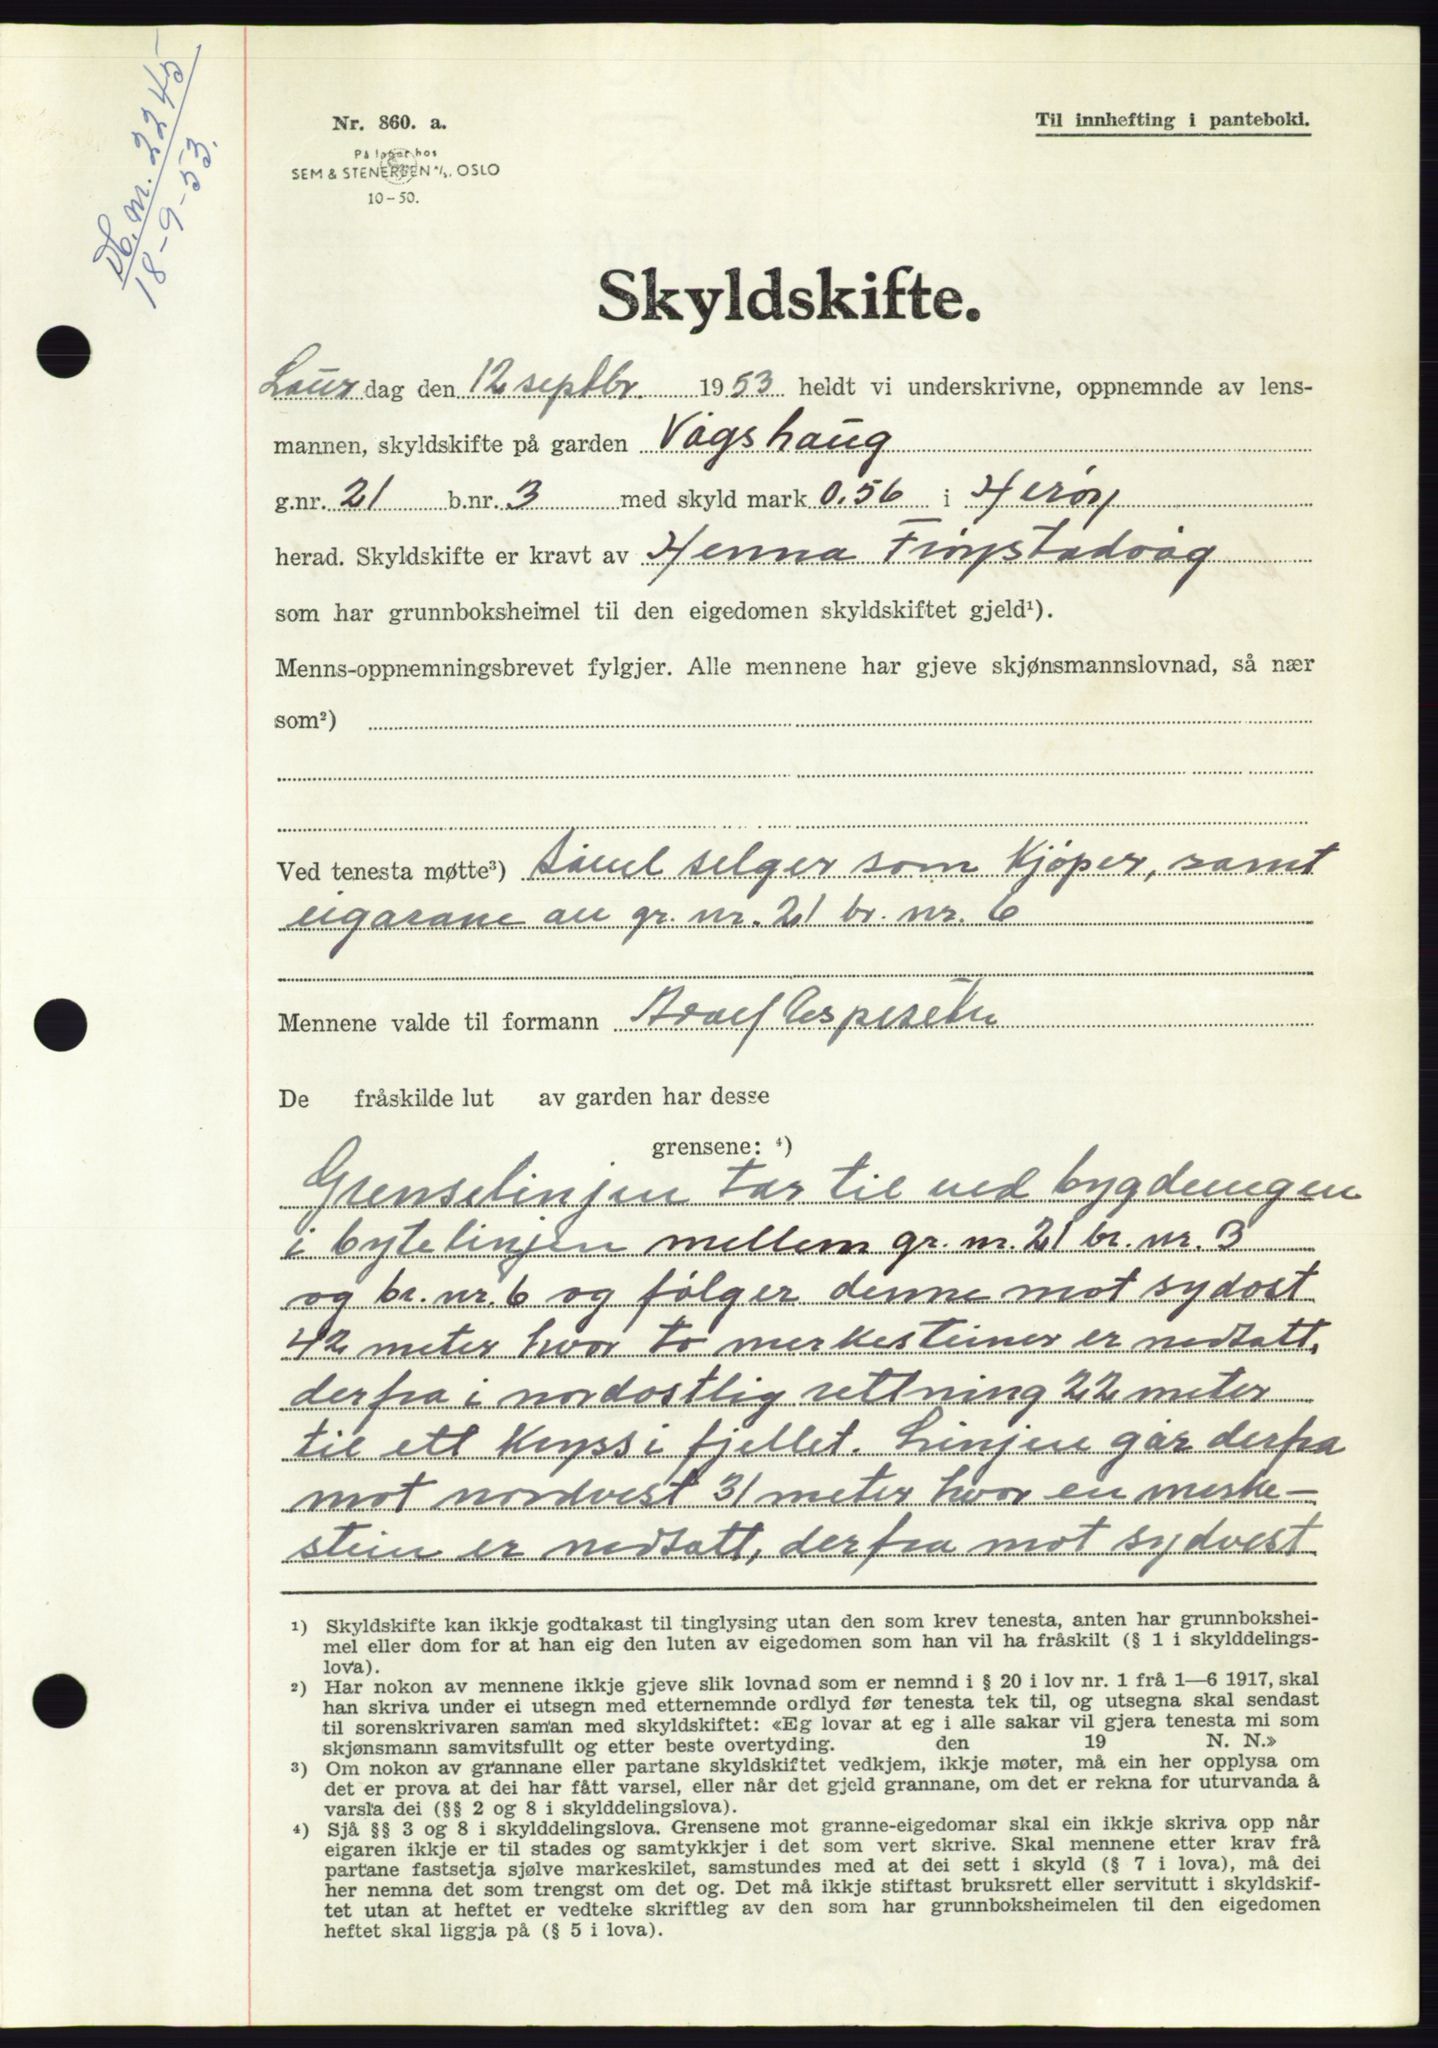 Db. nr. 2245
18-9-53.
Nr. 860. a.
Til innhefting i panteboki.
På lager hos
SEM & STENERSEN A/S, OSLO
10-50.
Skyldskifte.
Laur dag den 12 septbr. 1953 heldt vi underskrivne, oppnemnde av lens-
mannen, skyldskifte på garden Vågshaug
g.nr. 21 b.nr. 3 med skyld mark 0.56 i Herøy
herad. Skyldskifte er kravt av Henna Frøystadvåg
som har grunnboksheimel til den eigedomen skyldskiftet gjeld¹).
Menns-oppnemningsbrevet fylgjer. Alle mennene har gjeve skjønsmannslovnad, så nær
som²)
Ved tenesta møtte³) såvel selger som Kjøper, samt
eigarane av gr. nr. 21 br. nr. 6
Mennene valde til formann
De fråskilde lut av garden har desse
grensene: ⁴)
Grenselinjen tar til ved bygdevegen
i bytelinjen mellem gr. nr. 21 br. nr. 3
og br. nr. 6 og følger denne mot sydost
42 meter hvor to merkesteiner er nedsatt,
derfra i nordostlig rettning 22 meter
til ett Kryss i fjellet. Linjen går derfra
mot nordvest 31 meter hvor en merke-
stein er nedsatt, derfra mot sydvest
¹) Skyldskifte kan ikkje godtakast til tinglysing utan den som krev tenesta, anten har grunnbokshei-
mel eller dom for at han eig den luten av eigedomen som han vil ha fråskilt (§ 1 i skylddelings-
lova).
²) Har nokon av mennene ikkje gjeve slik lovnad som er nemnd i § 20 i lov nr. 1 frå 1—6 1917, skal
han skriva under ei utsegn med etternemnde ordlyd før tenesta tek til, og utsegna skal sendast
til sorenskrivaren saman med skyldskiftet: «Eg lovar at eg i alle sakar vil gjera tenesta mi som
skjønsmann samvitsfullt og etter beste overtyding. den 19 N. N.»
³) Om nokon av grannane eller partane skyldskiftet vedkjem, ikkje møter, må ein her opplysa om
det er prova at dei har fått varsel, eller når det gjeld grannane, om det er rekna for uturvanda å
varsla dei (§§ 2 og 8 i skylddelingslova).
⁴) Sjå §§ 3 og 8 i skylddelingslova. Grensene mot granne-eigedomar skal ein ikkje skriva opp når
eigaren ikkje er til stades og samtykkjer i det som vert skrive. Skal mennene etter krav frå
partane fastsetja sjølve markeskilet, samstundes med at dei sett i skyld (§ 7 i lova), må dei
her nemna det som trengst om det og. Det må ikkje stiftast bruksrett eller servitutt i skyldskif-
tet utan at heftet er vedteke skriftleg av den som har grunnboksheimelen til den eigedomen
heftet skal liggja på (§ 5 i lova).